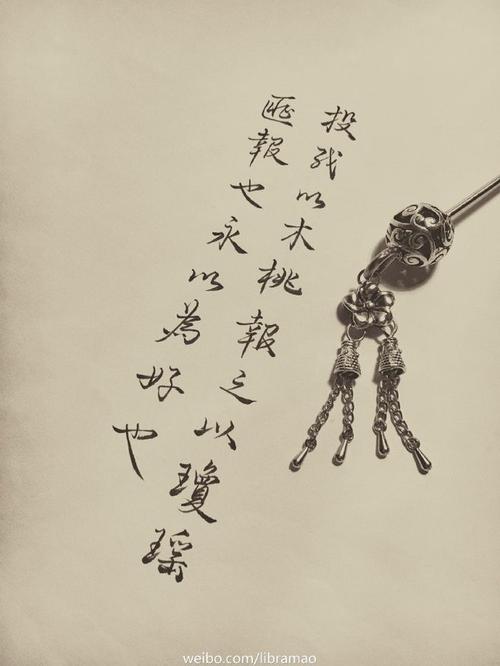 投我以木桃報之以瓊瑤
匪報也永以為好也
weibo.com/libramao